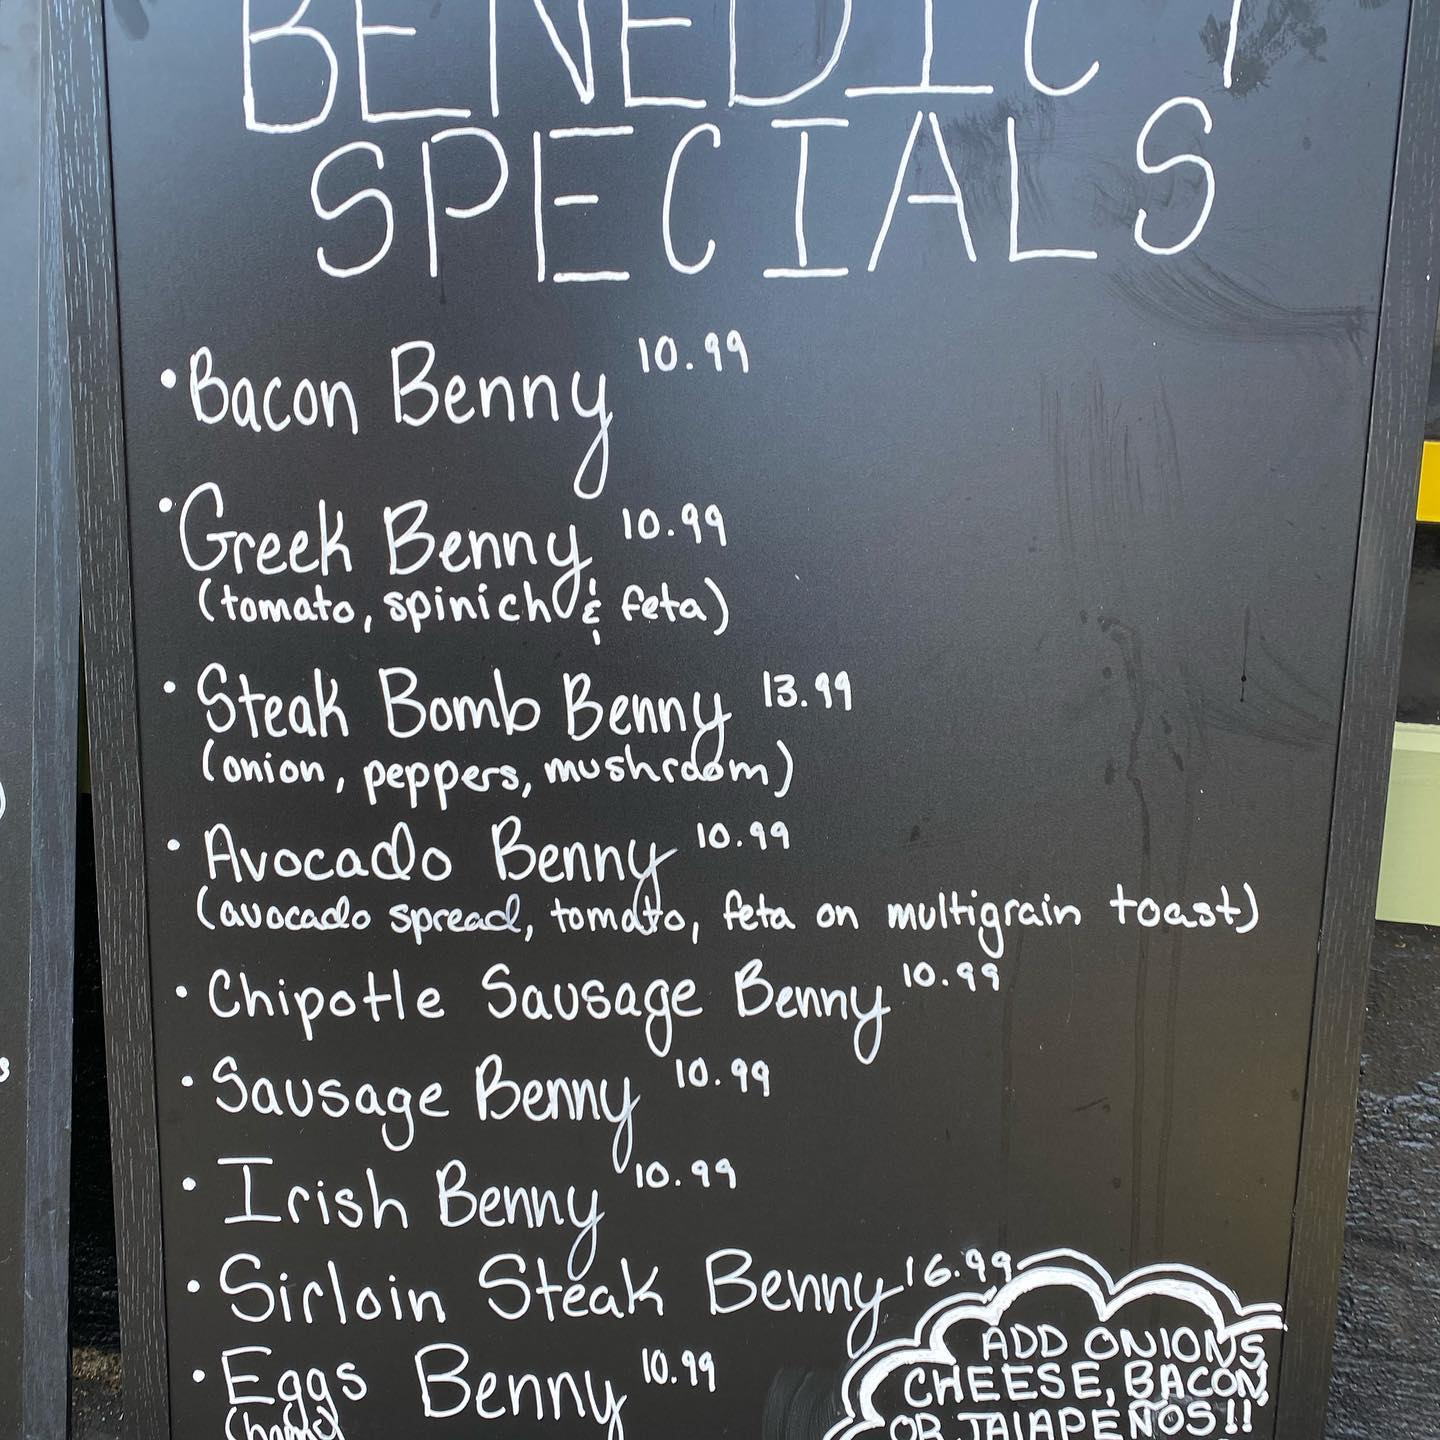 BENEDICT
SPECIALS
• Bacon Benny 10.99
• Greek Benny 10.99
(tomato, spinich & feta)
• Steak Bomb Benny 13.99
(onion, peppers, mushroom)
• Avocado Benny 10.99
(avocado spread, tomato, feta on multigrain toast)
• Chipotle Sausage Benny 10.99
• Sausage Benny 10.99
• Irish Benny 10.99
• Sirloin Steak Benny 16.99
• Eggs Benny 10.99
ADD ONIONS,
CHEESE, BACON,
OR JALAPEÑOS!!